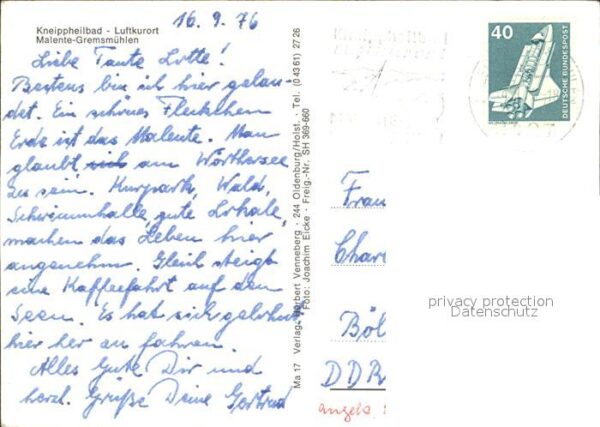 Kneippheilbad - Luftkurort
Malente-Gremsmühlen
16. 9. 76
Liebe Tante Lotte!
Bestens bin ich hier gelan-
det. Ein schönes Fleckchen
Erde ist das Malente. Man
glaubt sich am Wörthersee
zu sein. Kurpark, Wald,
Schwimmhalle, gute Lokale,
machen das Leben hier
angenehm. Gleich steigt
eine Kaffeefahrt auf den
Seen. Es hat sich gelohnt
hier her zu fahren.
Alles Gute Dir und
herzl. Grüße Deine Gertrud
Ma 17 Verlag Herbert Venneberg · 244 Oldenburg/Holst. · Tel. (0 43 61) 27 26
Foto: Joachim Eicke Freig.-Nr. SH 369-660
40
DEUTSCHE BUNDESPOST
Frau
Char
Böl
DDR
angek.
privacy protection
Datenschutz